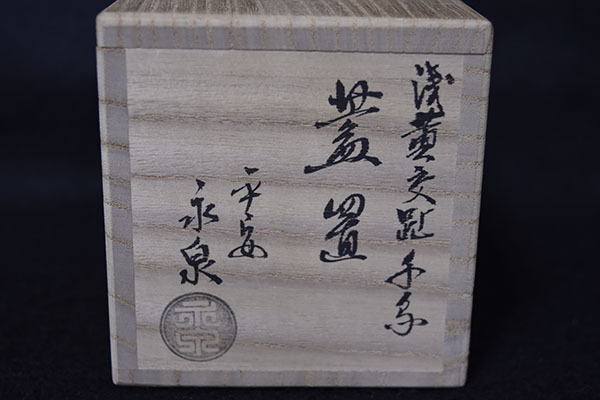 浅黄交趾
蓋置
平安
永泉